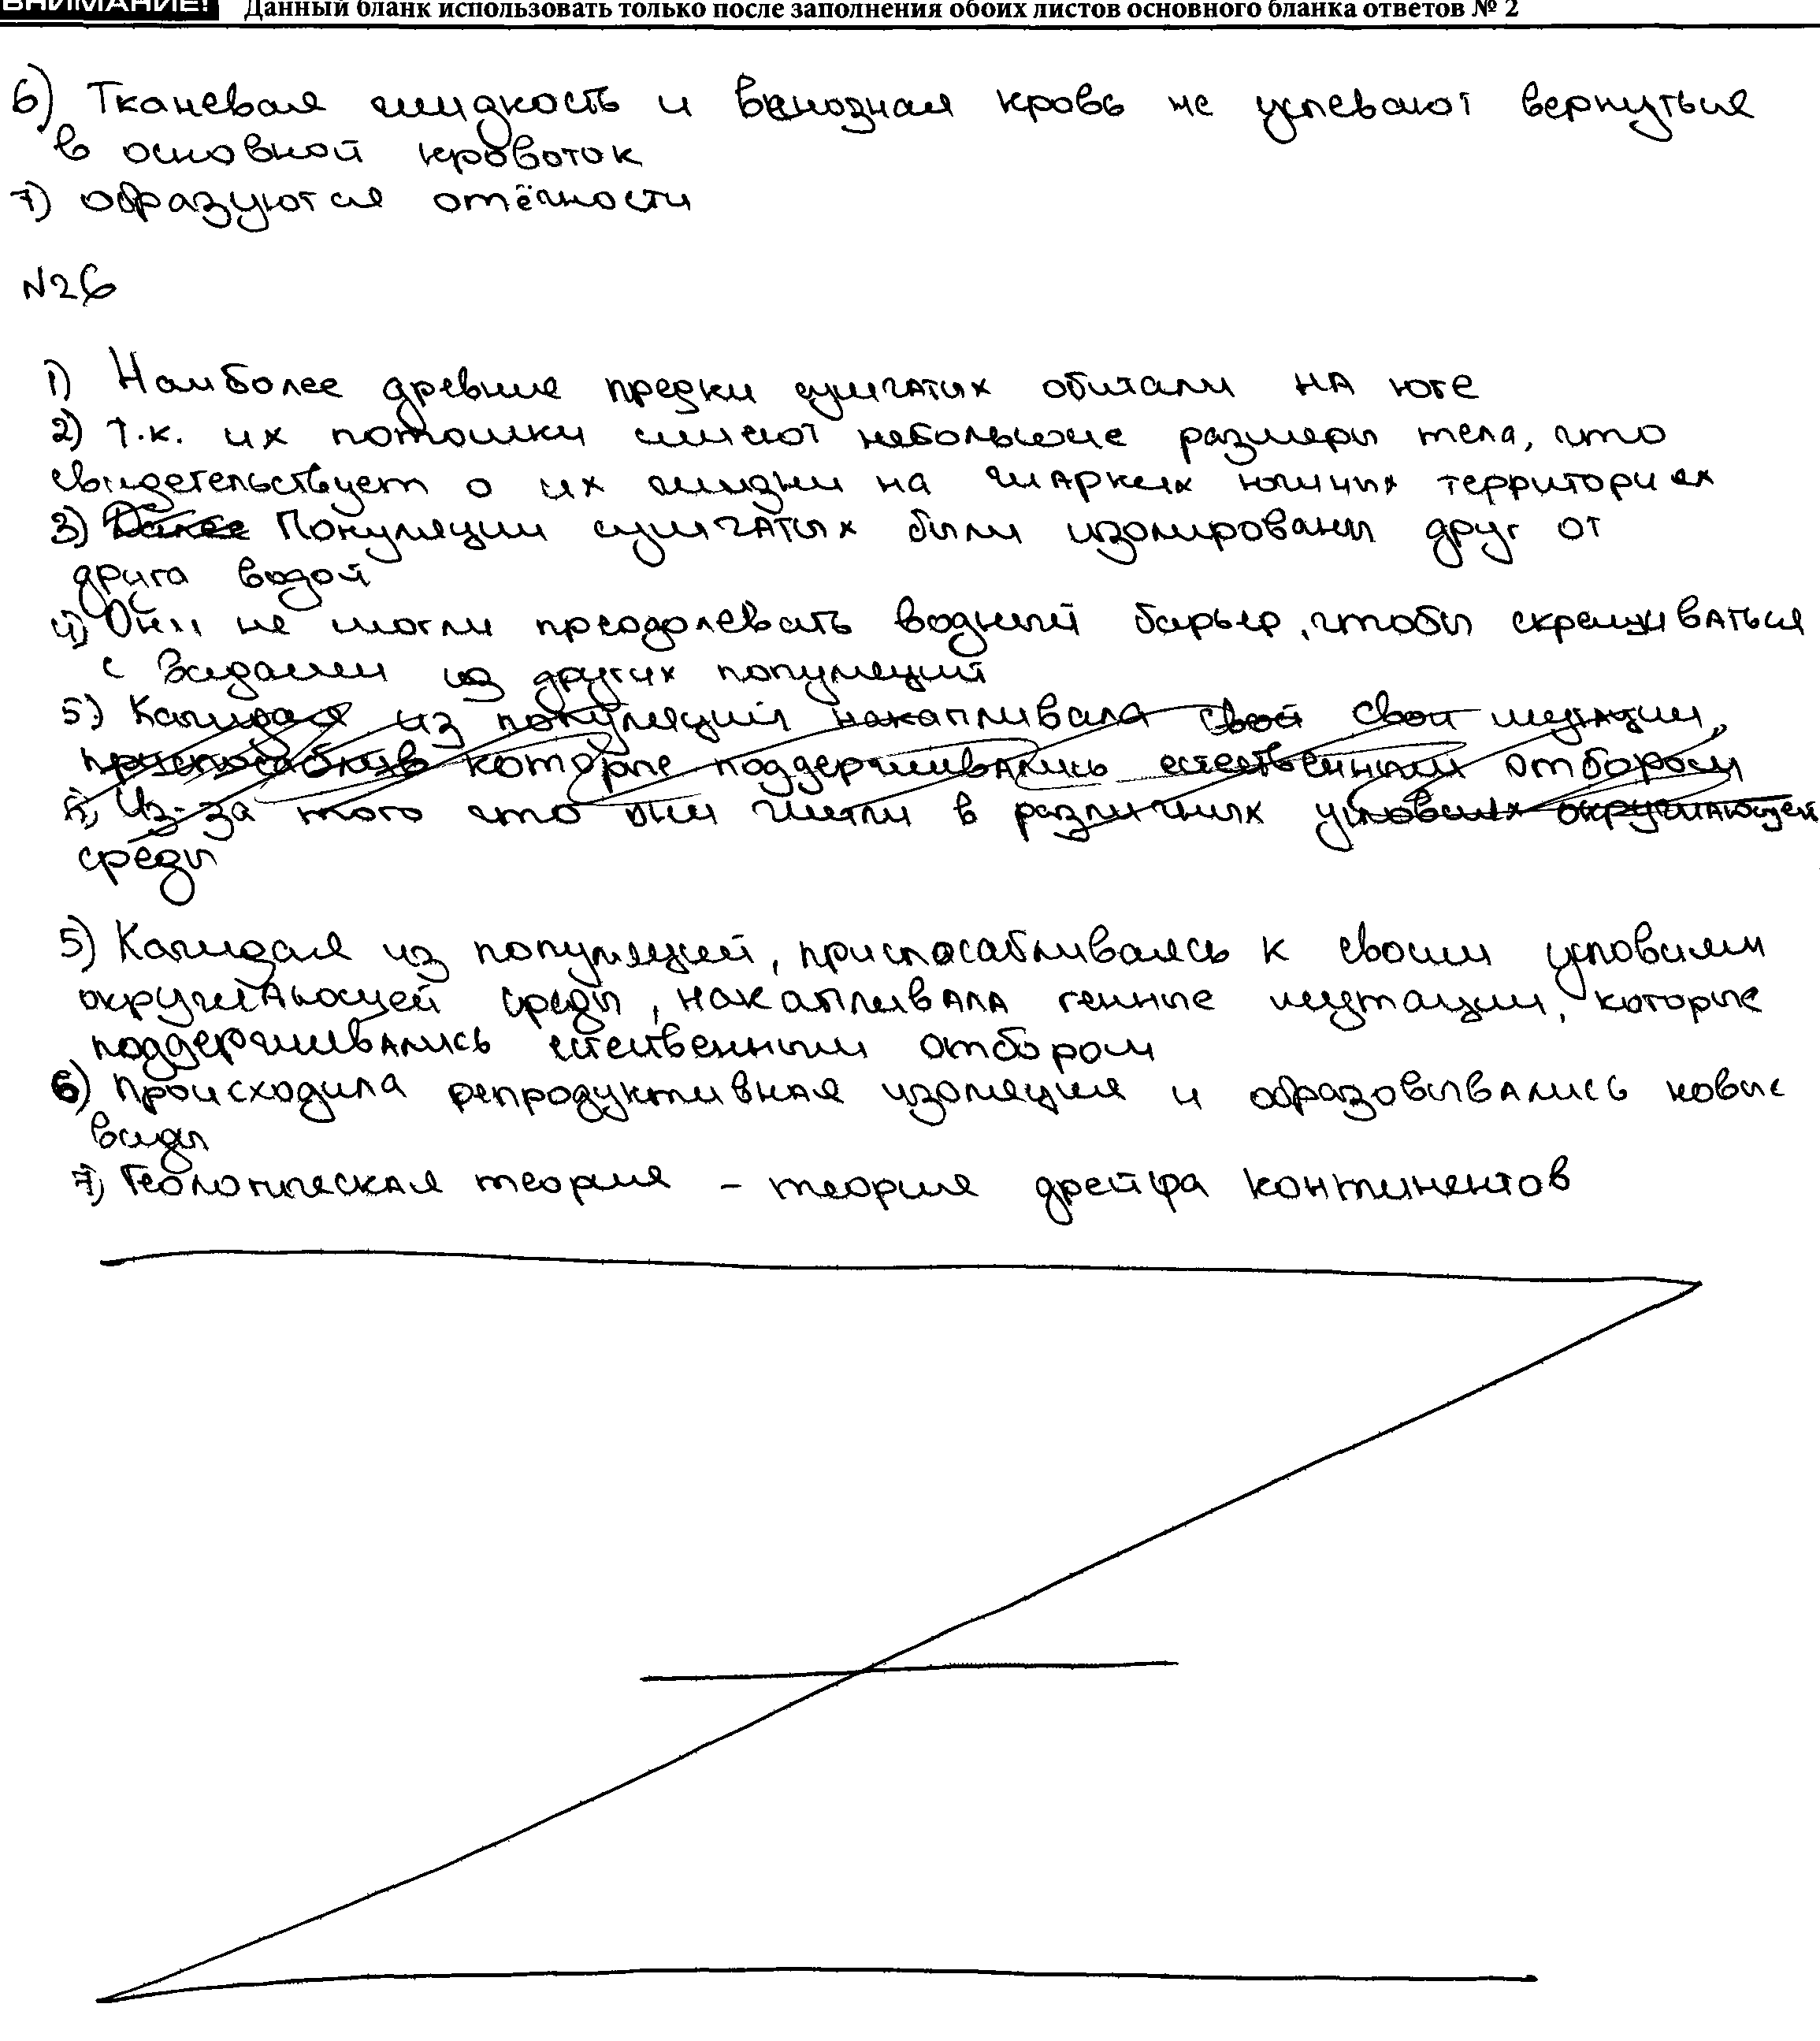 ВНИМАНИЕ! Данный бланк использовать только после заполнения обоих листов основного бланка ответов № 2
6) Тканевая жидкость и венозная кровь не успевают вернуться
в основной кровоток
7) образуются отёчности
№26
1) Наиболее древние предки сумчатых обитали на юге
2) т.к. их потомки имеют небольшие размеры тела, что
свидетельствует о их жизни на жарких южных территориях
3) Далее Популяции сумчатых были изолированы друг от
друга водой
4) Они не могли преодолевать водный барьер, чтобы скрещиваться
с видами из других популяций
5) Каждая из популяций накапливала свой свои мутации,
приспособив которые поддерживались естественным отбором
6) Из-за того что они жили в различных условиях окружающей
среды
5) Каждая из популяций, приспосабливаясь к своим условиям
окружающей среды, накапливала генные мутации, которые
поддерживались естественным отбором
6) Происходила репродуктивная изоляция и образовывались новые
виды
7) Геологическая теория – теория дрейфа континентов